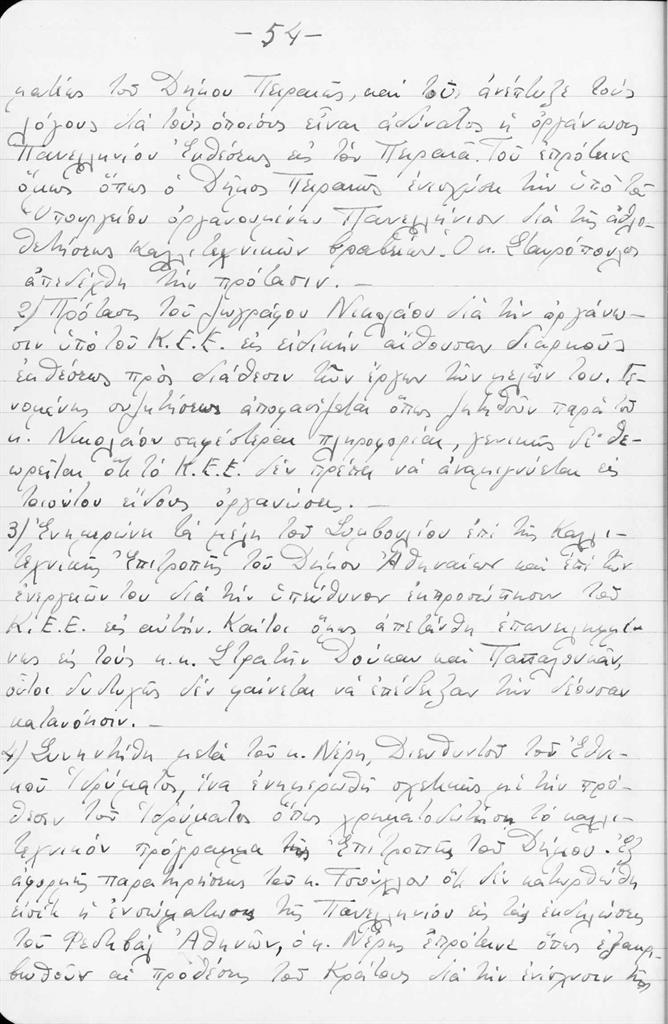 -54-
ματέως τοῦ Δήμου Πειραιῶς, καί τοῦ ἀνέπτυξε τούς
λόγους διά τούς ὁποίους εἶναι ἀδύνατος ἡ ὀργάνωσις
Πανελληνίου Ἐκθέσεως εἰς τόν Πειραιᾶ. Τοῦ ἐπρότεινε
ὅμως ὅπως ὁ Δῆμος Πειραιῶς ἐνισχύσῃ τήν ὑπό τοῦ
Ὑπουργείου ὀργανουμένην Πανελλήνιον διά τῆς ἀθλο-
θετήσεως καλλιτεχνικῶν βραβείων. Ὁ κ. Σταυρόπουλος
ἀπεδέχθη τήν πρότασιν. -
2) Πρότασις τοῦ ζωγράφου Νικολάου διά τήν ὀργάνω-
σιν ὑπό τοῦ Κ.Ε.Ε. εἰς εἰδικήν αἴθουσαν διαρκοῦς
ἐκθέσεως πρός διάθεσιν τῶν ἔργων τῶν μελῶν του. Γε-
νομένης συζητήσεως ἀποφασίζεται ὅπως ζητηθοῦν παρά τοῦ
κ. Νικολάου σαφέστεραι πληροφορίαι, γενικῶς δέ θε-
ωρεῖται ὅτι τό Κ.Ε.Ε. δέν πρέπει νά ἀναμιγνύεται εἰς
τοιούτου εἴδους ὀργανώσεις. -
3) Ἐνημερώνει τά μέλη τοῦ Συμβουλίου ἐπί τῆς Καλλι-
τεχνικῆς Ἐπιτροπῆς τοῦ Δήμου Ἀθηναίων καί ἐπί τῶν
ἐνεργειῶν του διά τήν ὑπεύθυνον ἐκπροσώπησιν τοῦ
Κ.Ε.Ε. εἰς αὐτήν. Καίτοι ὅμως ἀπετάνθη ἐπανειλημμέ-
νως εἰς τούς κ.κ. Στρατήν Δούκαν καί Παπαλουκᾶν,
οὗτοι δυστυχῶς δέν φαίνεται νά ἐπέδειξαν τήν δέουσαν
κατανόησιν. -
4) Συνηντήθη μετά τοῦ κ. Νέρη, Διευθυντοῦ τοῦ Ἐθνι-
κοῦ Ἱδρύματος, ἵνα ἐνημερωθῇ σχετικῶς μέ τήν πρό-
θεσιν τοῦ Ἱδρύματος ὅπως χρηματοδοτήσῃ τό καλλι-
τεχνικόν πρόγραμμα τῆς Ἐπιτροπῆς τοῦ Δήμου. Ἐξ
ἀφορμῆς παρατηρήσεως τοῦ κ. Τσούχλου ὅτι δέν κατωρθώθη
εἰσέτι ἡ ἐνσωμάτωσις τῆς Πανελληνίου εἰς τάς ἐκδηλώσεις
τοῦ Φεστιβάλ Ἀθηνῶν, ὁ κ. Νέρης ἐπρότεινε ὅπως ἐξακρι-
βωθοῦν αἱ προθέσεις τοῦ Κράτους διά τήν ἐνίσχυσιν τῆς